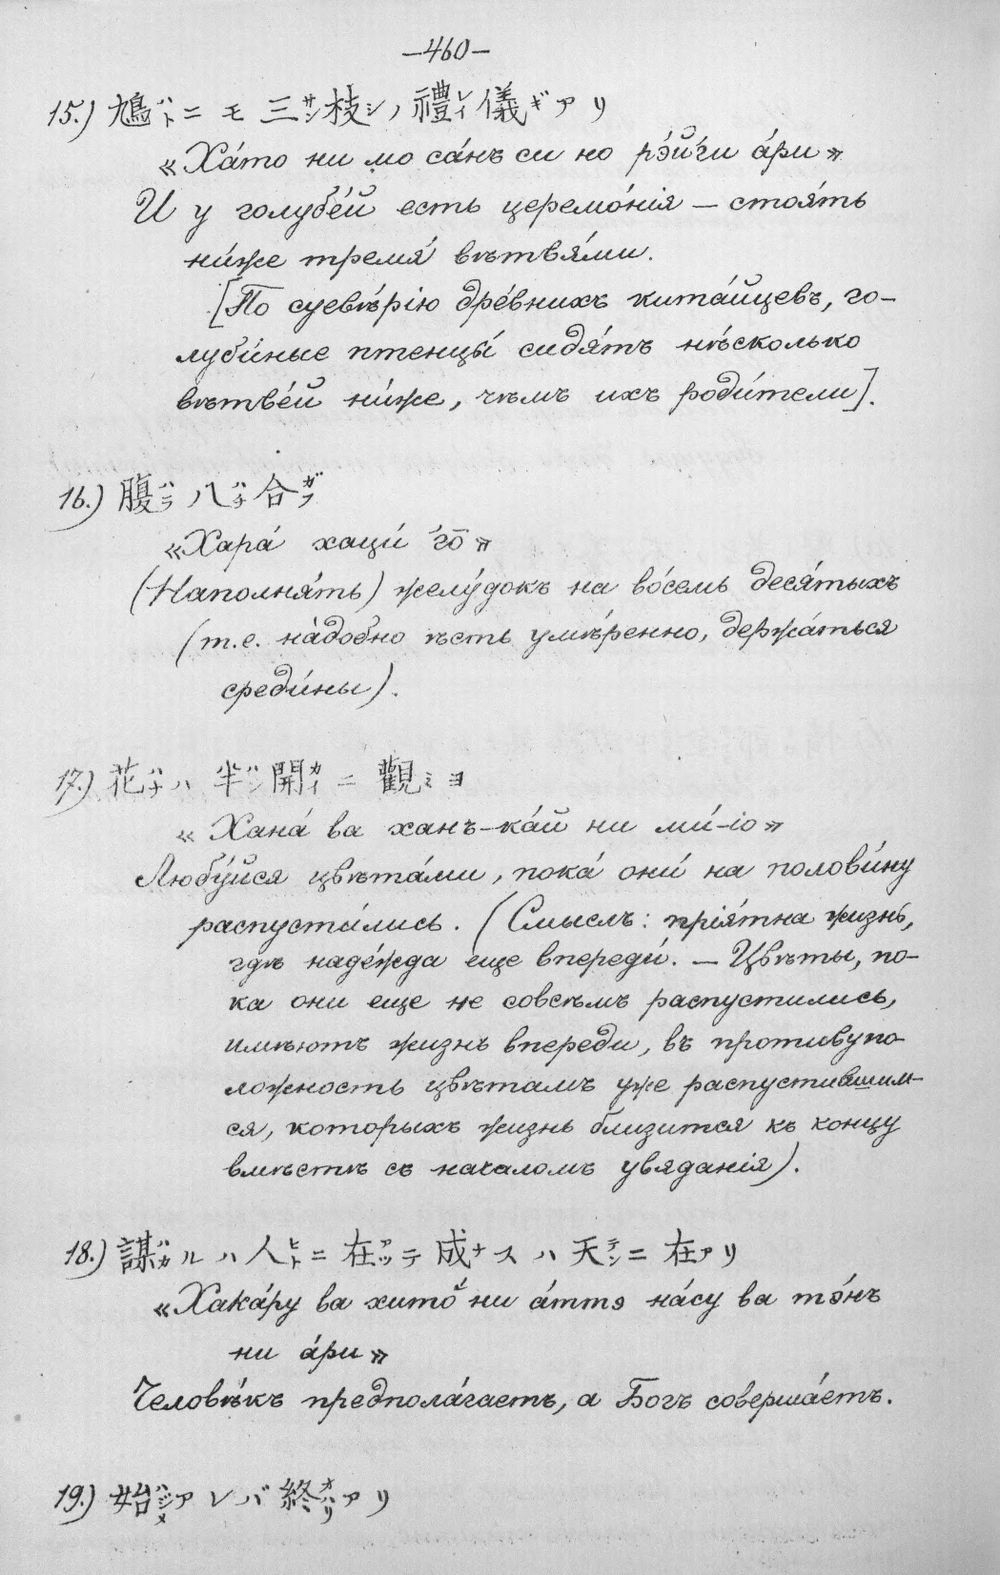 —460—
15.) 鳩ハトニモ三サン枝シノ禮レイ儀ギアリ
«Ха́то ни мо са́нъ си но рэ́йги а́ри»
И у голубе́й есть церемо́нія — стоя́ть
ни́же тремя́ вѣтвя́ми.
[По суевѣ́рію дре́внихъ кита́йцевъ, го-
луби́ные птенцы́ сидя́тъ нѣ́сколько
вѣтве́й ни́же, чѣмъ ихъ роди́тели].
16.) 腹ハラ八ハチ合ガフ
«Хара́ хаци́ го̄»
(Наполня́ть) желу́докъ на во́семь деся́тыхъ
(т.е. на́добно ѣсть умѣ́ренно, держа́ться
среди́ны).
17.) 花ハナハ半ハン開カイニ觀ミヨ
«Хана́ ва ханъ-ка́й ни ми́-іо»
Любу́йся цвѣта́ми, пока́ они́ на полови́ну
распусти́лись. (Смыслъ: прія́тна жизнь,
гдѣ наде́жда еще впереди́. — Цвѣты, по-
ка они еще не совсѣмъ распустились,
имѣютъ жизнь впереди, въ противупо-
ложность цвѣтамъ уже распустившим-
ся, которыхъ жизнь близится къ концу
вмѣстѣ съ началомъ увяданія).
18.) 謀ハカルハ人ヒトニ在アッテ成ナスハ天テンニ在アリ
«Хака́ру ва хито́ ни а́ттэ на́су ва тэ́нъ
ни а́ри»
Человѣ́къ предпола́гаетъ, а Богъ соверша́етъ.
19.) 始ハジメアレバ終オハリアリ